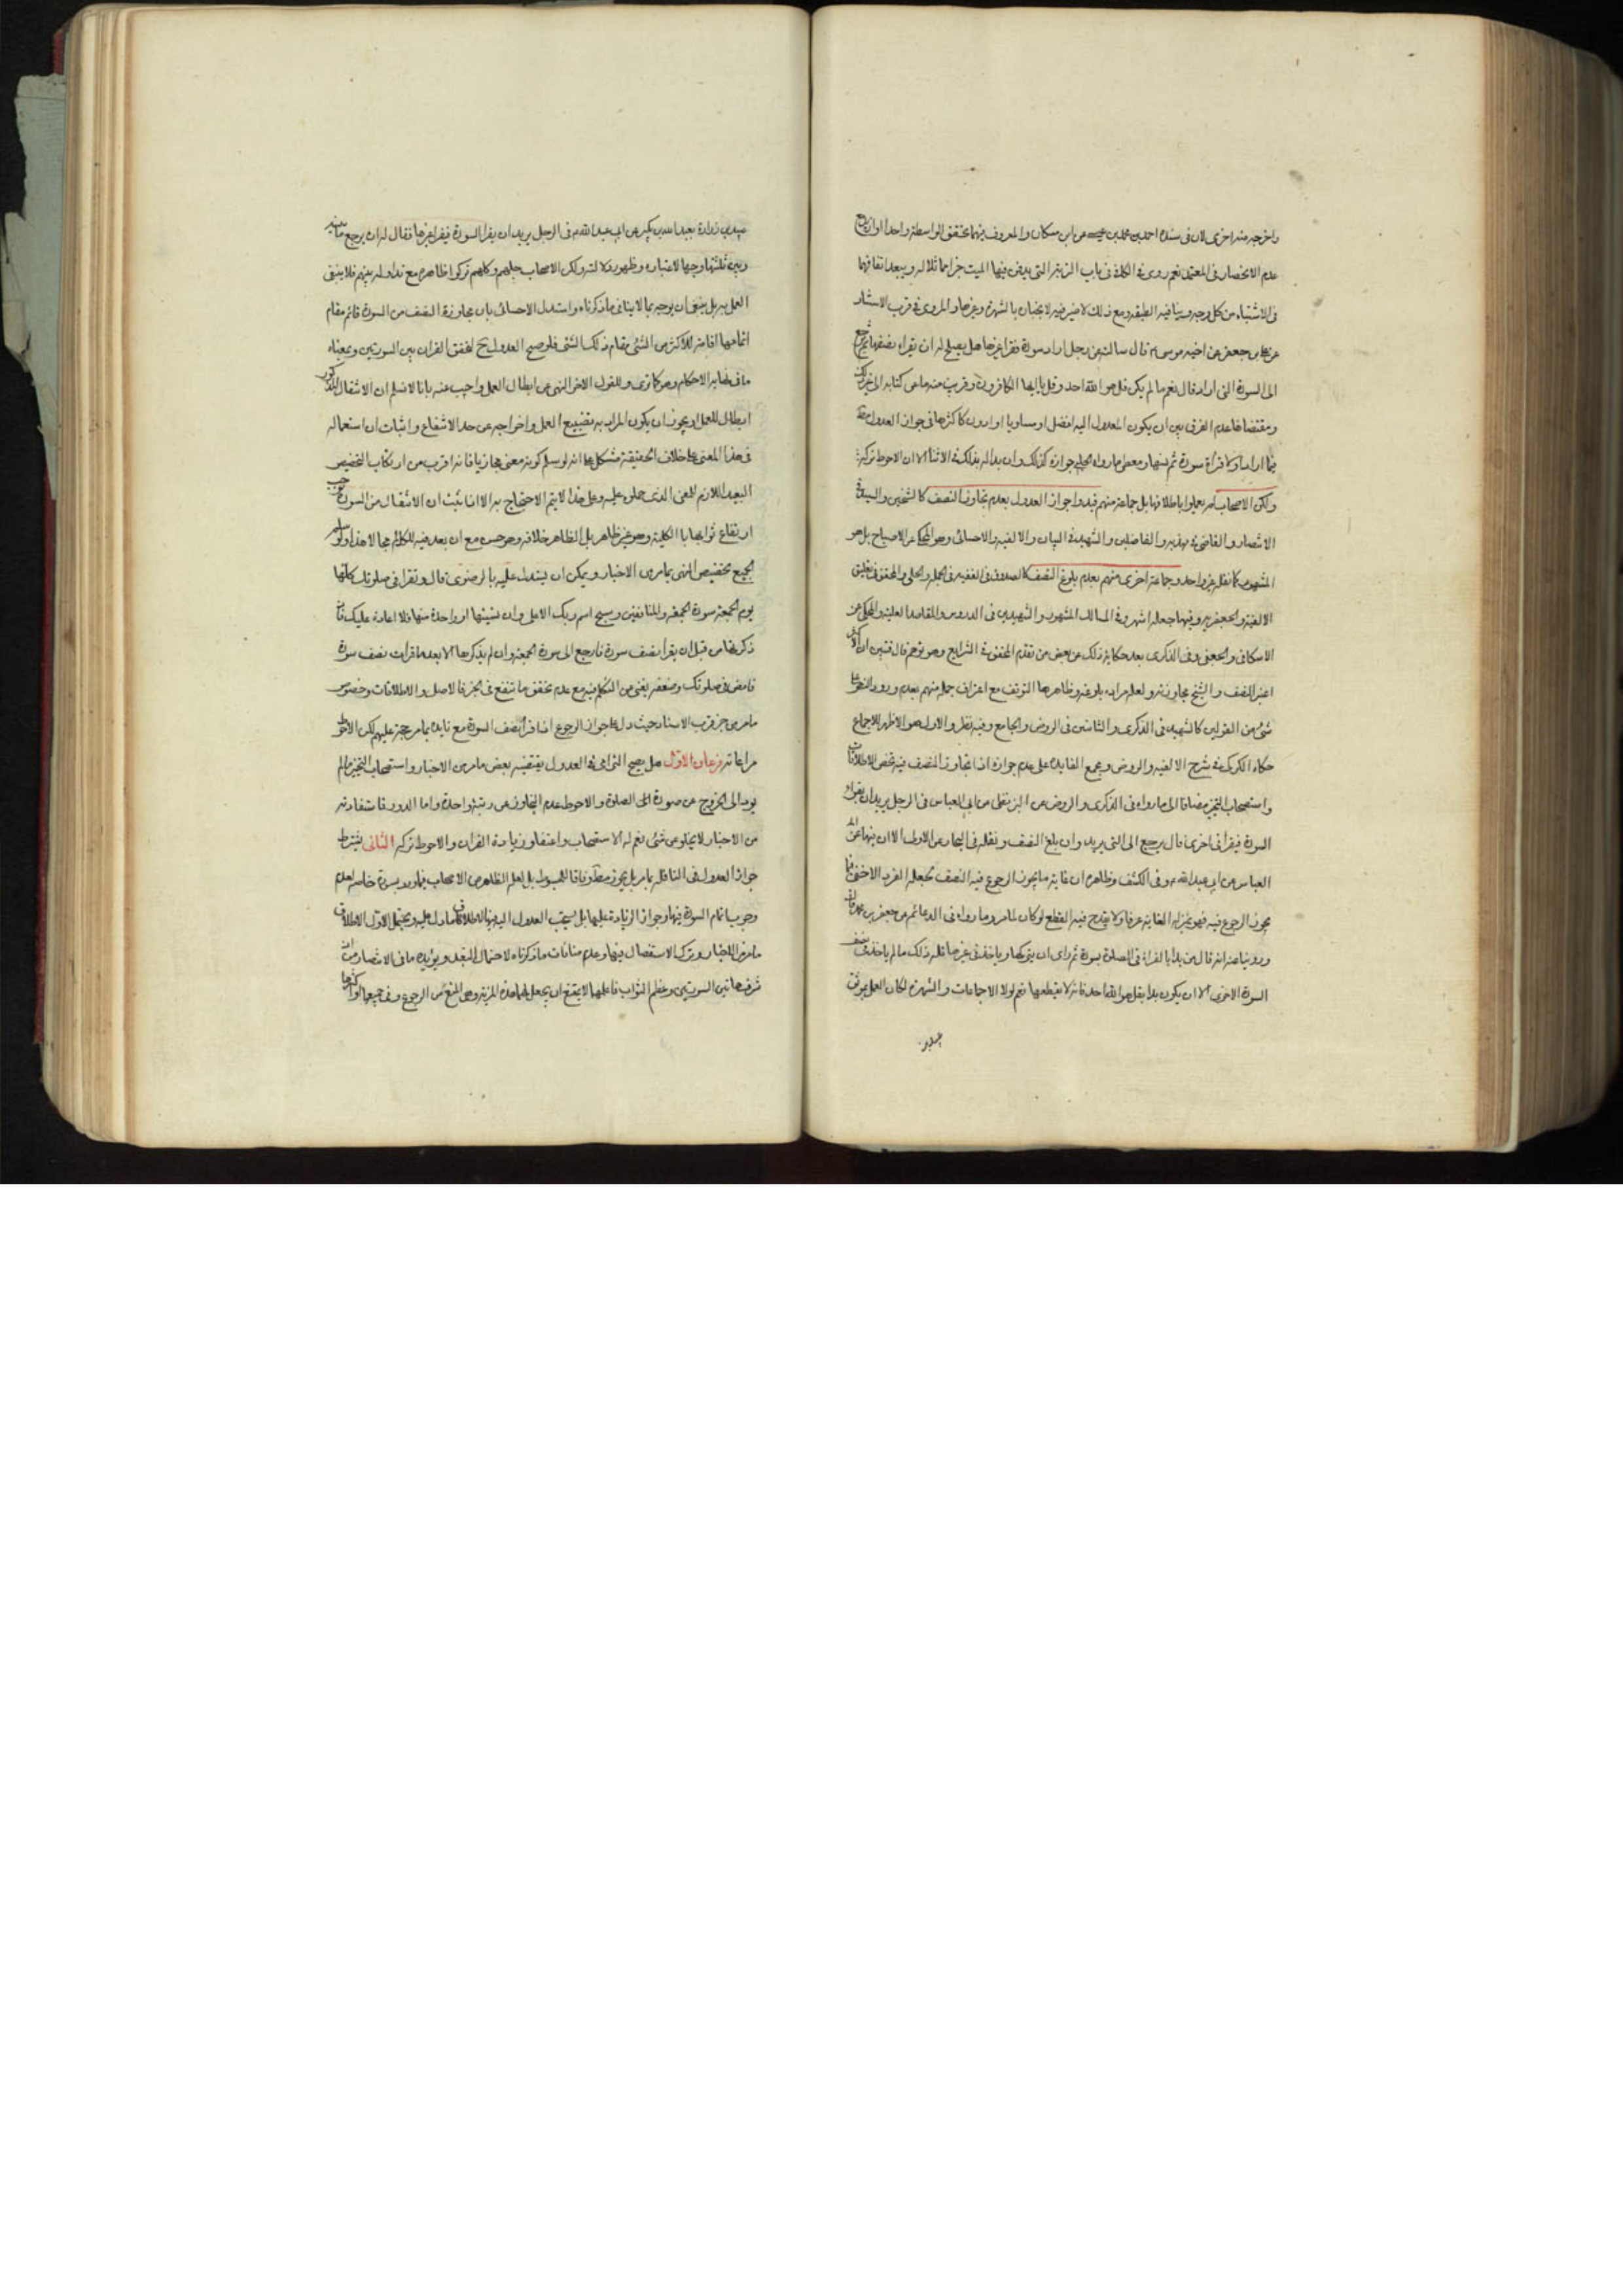 واخرجه منه اخرى لان فى سنده احمد بن محمد بن عن ابن مسكان والمعروف بينهما تحقق الواسطة واحدا او ازيد
عدم الانحصار فى المعتمد نعم روى فى باب الزيتر التى فيها الميت ويبعد اتفاقهما
فى الاشتباه من كل وجه وينافيه الطبقه ومع ذلك لا ضير فيه لانجباره بالشهرة وغيرها والمروى فى قرب الاسناد
عن على بن جعفر عن اخيه موسى قال سالته عن رجل اراد سورة فقرا غيرها هل يصلح له ان يقراء نصفها ثم يرجع
الى السورة التى اراد قال نعم ما لم يكن قل هو الله احد وقل يا ايها الكافرون وقريب منه ما عن كتابه الى غير ذلك
ومقتضاها عدم الفرق بين ان يكون المعدول اليه افضل او مساويا او ادون كاكثرها فى جواز العدول
فيما اراد قراة سورة ثم نسيها ومعطى ما رواه الحلبى جوازه كذلك وان بدا له بذلك فى الاثناء الا ان الاحوط تركه
ولكن الاصحاب لم يعملوا باطلاقها بل جماعة منهم قيدوا جواز العدول بعدم تجاوز النصف كالشيخين والسيد فى
الانتصار والقاضى فى مهذبه والفاضلين والشهيد فى البيان والالفيه والاحسائى وهو المحكى عن الاصباح بل هو
المشهور كما نقل غير واحد وجماعة اخرى منهم بعدم بلوغ النصف كالصدوق فى الفقيه والحلى والمحقق فى تعليق
الالفيه والجعفريه وفيها جعله اشهر وفى المسالك المشهور والشهيدين فى الدروس والمقاصد العليه والمحكى عن
الاسكافى والجعفى وفى الذكرى بعد حكاية ذلك عن بعض من تقدم المحقق فى الشرايع وهو توهم قال فتبين ان الاكثر
اعتبر النصف والشيخ مجاوزته ولعله مراده بلوغه وظاهرها التوقف مع اعتراف جمله منهم بعدم ورود النص على
شئ من القولين كالشهيد فى الذكرى والثانيين فى الروض والجامع وفيه نظر والاول هو الاظهر للاجماع
حكاه الكركى فى شرح الالفيه والروض ومجمع الفايده على عدم جوازه اذا تجاوز النصف فيه تخص الاطلاقات
واستصحاب التخيير مضافا الى ما رواه فى الذكرى والروض عن البزنطى عن ابى العباس فى الرجل يريدان يقراء
السورة فيقرا فى اخرى قال يرجع الى التى يريد وان بلغ النصف ونقله فى البحار عن الاول الا ان فيها عن
العباس عن ابى عبد الله وفى الكشف وظاهره ان غاية ما يجوز الرجوع فيه النصف لجعله الفرد الاخفى مما
يجوز الرجوع فيه فهو بمنزلة الغاية عرفا ولا يقدح فيه القطع لو كان لما مر وما رواه فى الدعائم عن جعفر بن محمد قال
وروينا عنه انه قال من بدا بالقراة فى الصلوة بسورة ثم راى ان يتركها وياخذ فى غيرها فله ذلك ما لم ياخذ فى نصف
السورة الاخرى الا ان يكون بدا بقل هو الله احد فانه لا يقطعها نعم لولا الاجماعات والشهرة لكان العمل بموثق
عبيد بن
عبيد بن زرارة بعبد الله بن بكير عن ابى عبد الله فى الرجل يريد ان يقرا السورة فيقرا غيرها فقال له ان يرجع ما بينه
وبين ثلثيها وجها لاعتباره وظهور دلالته ولكن الاصحاب جلهم وكلهم تركوا ظاهره مع تداوله بينهم فلا ينبغى
العمل به بل ينبغى ان يوجه بما لا ينافى ما ذكرناه واستدل الاحسائى بان مجاوزة النصف من السورة قائم مقام
اتمامها اقامة للاكثر من الشئ مقام ذلك الشئ فلو صح العدول ح لتحقق القران بين السورتين وبمعناه
ما فى نهاية الاحكام وهو كما ترى وللقول الاخر النهى عن ابطال العمل واجيب عنه بانا لا نسلم ان الانتقال المذكور
ابطال للعمل او يجوز ان يكون المراد به تضييع العمل واخراجه عن حد الانتفاع واثبات ان استعماله
فى هذا المعنى على خلاف الحقيقة مشكل على انه لو سلم كونه معنى مجازيا فانه اقرب من ارتكاب التخصيص
البعيد اللازم للمعنى الذى حملوه عليه وعلى هذا لا يتم الاحتجاج به الا اذا ثبت ان الانتقال من السورة يوجب
ارتفاع ثوابها بالكليه وهو غير ظاهر بل الظاهر خلافه وهو حسن مع ان بعد فيه للكلام مجالا هذا ولو سلم
الجميع تخصيص النهى بما مر من الاخبار ويمكن ان يستدل عليه بالرضوى قال وتقرا فى صلوتك كلها
يوم الجمعه سورة الجمعه والمنافقين وسبح اسم ربك الاعلى وان نسيتها او واحدة منها فلا اعادة عليك فان
ذكرتها من قبل ان تقرا نصف سورة فارجع الى سورة الجمعه وان لم تذكرها الا بعد ما قرات نصف سورة
فامض فى صلوتك وضعفه يغنى عن التكلم فيه مع عدم تحقق ما ينفع فى الجبر فالاصل والاطلاقات وخصوص
ما مر من خبر قرب الاسناد حيث دل على جواز الرجوع اذا قرا نصف السورة مع تايده بما مر حجة عليهم لكن الاحوط
مراعاته فرعان الاول هل يصح الترامى فى العدول يقتضيه بعض ما مر من الاخبار واستصحاب التخيير ما لم
يود الى الخروج عن صورة الصلوة والاحوط عدم التجاوز عن رتبة واحدة واما الدور فاستفادته
من الاخبار لا يخلو عن شئ نعم له الاستصحاب واغتفار زيادة القران والاحوط تركه الثانى يشترط
جواز العدول فى النافله بما مر بل يجوز مطلقا وفاقا للمبسوط بل لعله الظاهر من الاصحاب فيما ورد بسورة خاصه لعدم
وجوب اتمام السورة فيها وجواز الزيادة عليها بل يستحب العدول اليه فيها لاطلاق ما دل عليه ويحتمل الاول لاطلاق
ما مر من الاخبار وترك الاستفصال فيها وعدم منافات ما ذكرناه لاحتمال التعبد ويؤيده ما فى الانتصار من ان
شرف هاتين السورتين وعظم الثواب فاعلهما لا يمتنع ان يجعل لهما هذه المزية وهى المنع من الرجوع